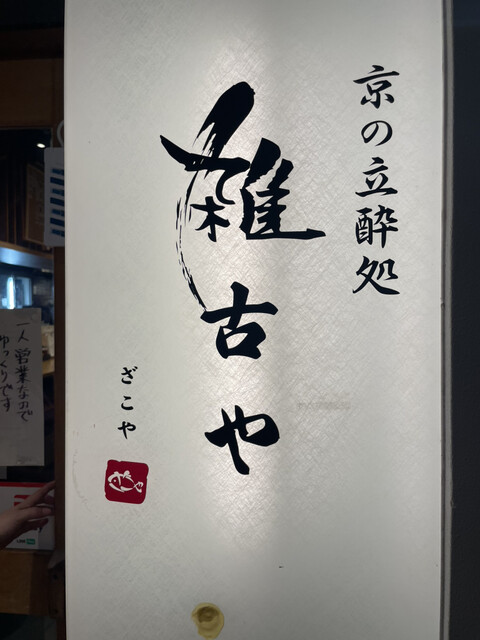 京の立酔処
雑古や
ざこや
一人営業なので
ゆっくりです